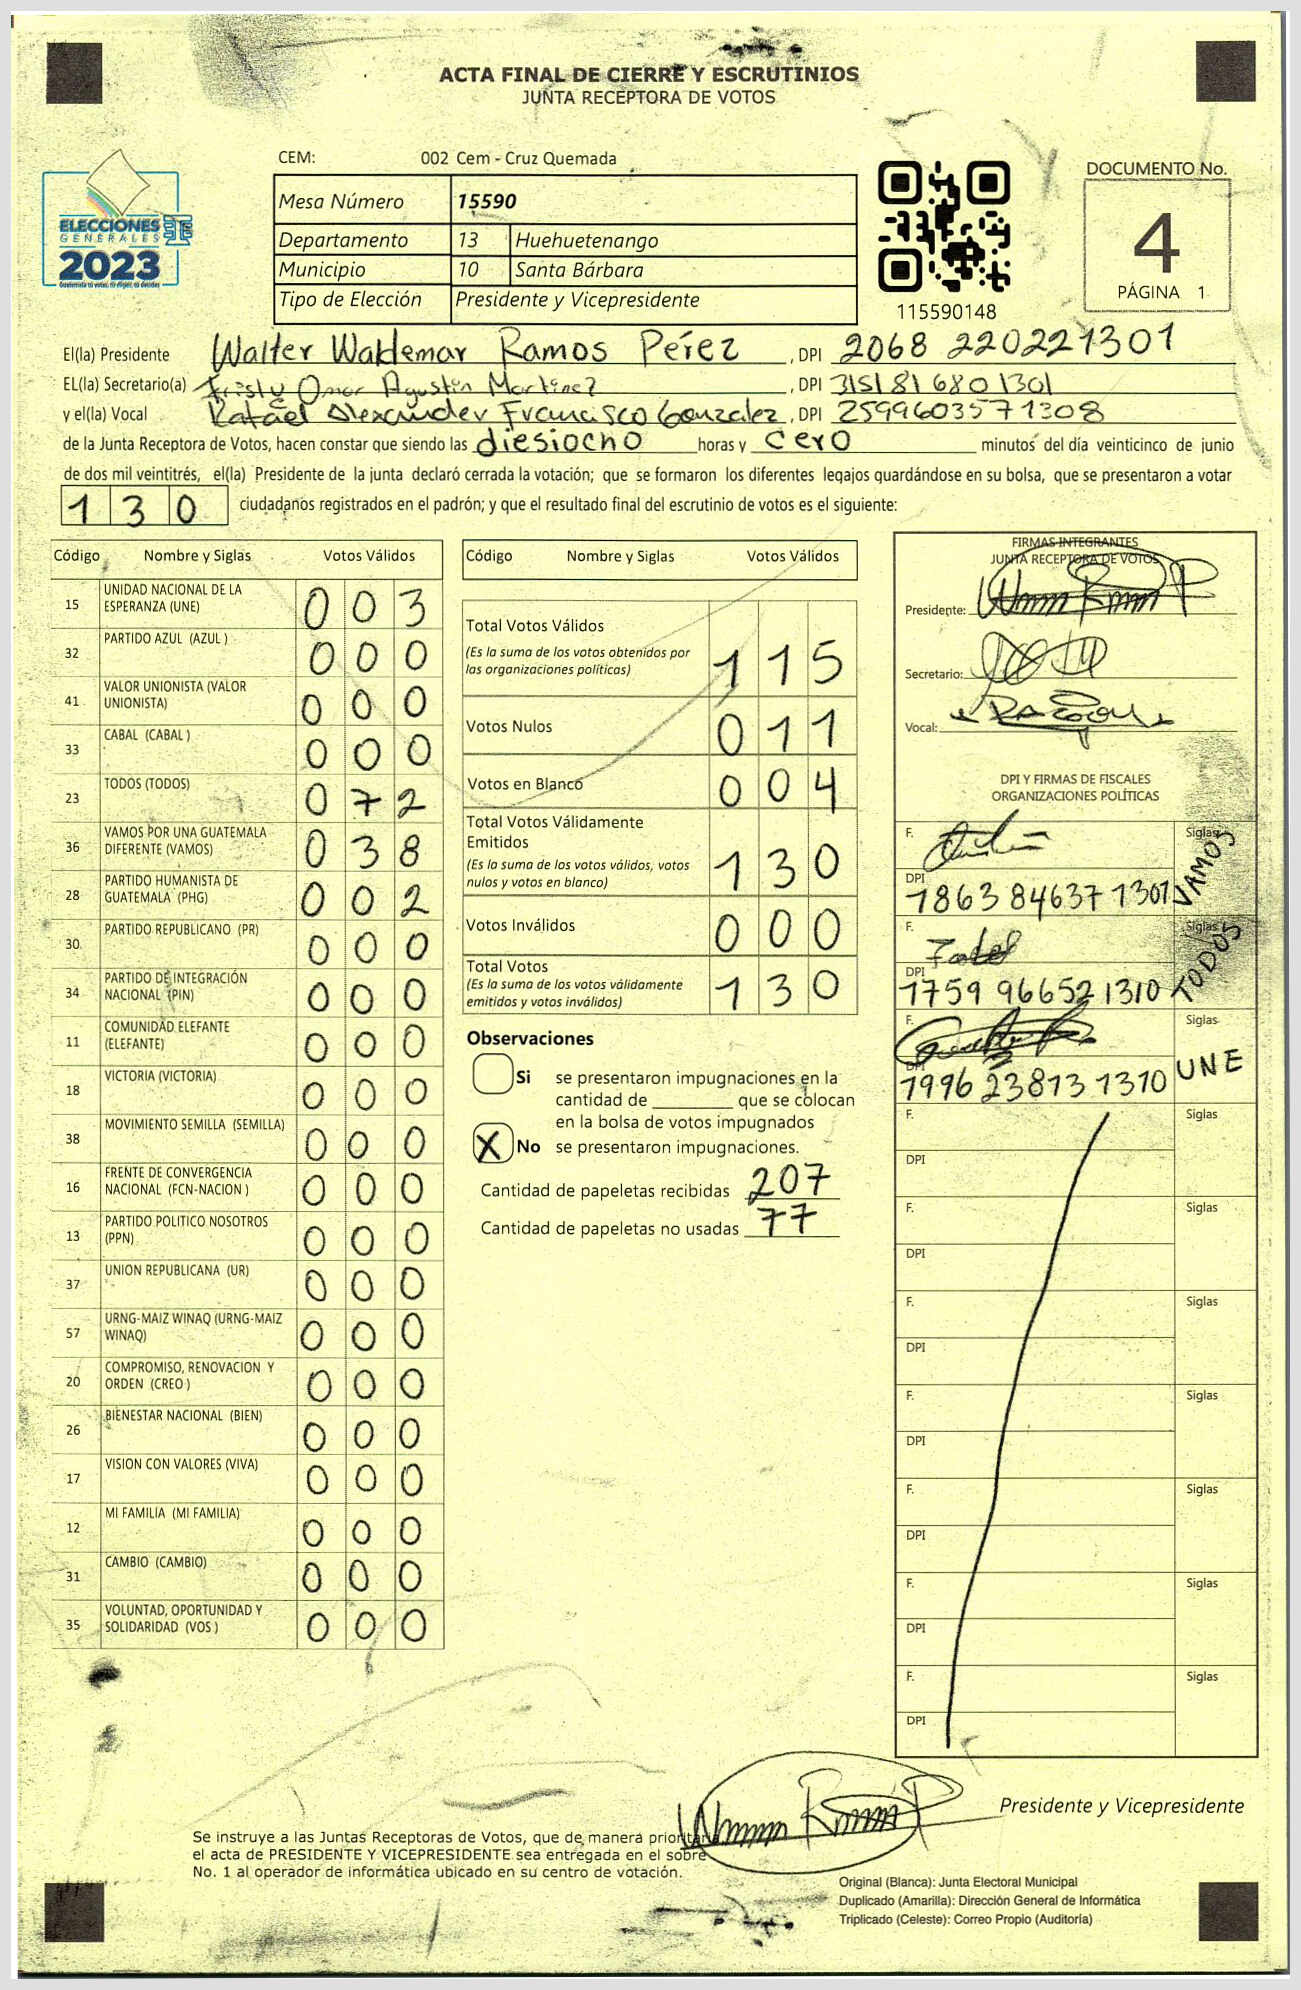 ACTA FINAL DE CIERRE Y ESCRUTINIOS
JUNTA RECEPTORA DE VOTOS
CEM: 002 Cem - Cruz Quemada
Mesa Número 15590
Departamento 13 Huehuetenango
Municipio 10 Santa Bárbara
Tipo de Elección Presidente y Vicepresidente
ELECCIONES
GENERALES
2023
115590148
DOCUMENTO No.
4
PÁGINA 1
El(la) Presidente Walter Waldemar Ramos Pérez, DPI 2068 220221301
EL(la) Secretario(a) Omar Agustin Martinez, DPI 3151816801301
y el(la) Vocal Rafael Alexander Francisco Gonzalez, DPI 2599603571308
de la Junta Receptora de Votos, hacen constar que siendo las diesiocho horas y cero minutos del día veinticinco de junio
de dos mil veintitrés, el(la) Presidente de la junta declaró cerrada la votación; que se formaron los diferentes legajos guardándose en su bolsa, que se presentaron a votar
130 ciudadanos registrados en el padrón; y que el resultado final del escrutinio de votos es el siguiente:
Código Nombre y Siglas Votos Válidos
15 UNIDAD NACIONAL DE LA ESPERANZA (UNE) 003
32 PARTIDO AZUL (AZUL ) 000
41 VALOR UNIONISTA (VALOR UNIONISTA) 000
33 CABAL (CABAL ) 000
23 TODOS (TODOS) 072
36 VAMOS POR UNA GUATEMALA DIFERENTE (VAMOS) 038
28 PARTIDO HUMANISTA DE GUATEMALA (PHG) 002
30 PARTIDO REPUBLICANO (PR) 000
34 PARTIDO DE INTEGRACIÓN NACIONAL (PIN) 000
11 COMUNIDAD ELEFANTE (ELEFANTE) 000
18 VICTORIA (VICTORIA) 000
38 MOVIMIENTO SEMILLA (SEMILLA) 000
16 FRENTE DE CONVERGENCIA NACIONAL (FCN-NACION ) 000
13 PARTIDO POLITICO NOSOTROS (PPN) 000
37 UNION REPUBLICANA (UR) 000
57 URNG-MAIZ WINAQ (URNG-MAIZ WINAQ) 000
20 COMPROMISO, RENOVACION Y ORDEN (CREO ) 000
26 BIENESTAR NACIONAL (BIEN) 000
17 VISION CON VALORES (VIVA) 000
12 MI FAMILIA (MI FAMILIA) 000
31 CAMBIO (CAMBIO) 000
35 VOLUNTAD, OPORTUNIDAD Y SOLIDARIDAD (VOS ) 000
Código Nombre y Siglas Votos Válidos
Total Votos Válidos 115
(Es la suma de los votos obtenidos por
las organizaciones políticas)
Votos Nulos 011
Votos en Blanco 004
Total Votos Válidamente
Emitidos 130
(Es la suma de los votos válidos, votos
nulos y votos en blanco)
Votos Inválidos 000
Total Votos 130
(Es la suma de los votos válidamente
emitidos y votos inválidos)
Observaciones
Si se presentaron impugnaciones en la
cantidad de ________ que se colocan
en la bolsa de votos impugnados
X No se presentaron impugnaciones.
Cantidad de papeletas recibidas 207
Cantidad de papeletas no usadas 77
FIRMAS INTEGRANTES
JUNTA RECEPTORA DE VOTOS
Presidente:
Secretario:
Vocal:
DPI Y FIRMAS DE FISCALES
ORGANIZACIONES POLÍTICAS
F. Siglas VAMOS
DPI 1863 84637 1301
F. Siglas TODOS
DPI 1759 96652 1310
F. Siglas UNE
DPI 1996 23813 1310
F. Siglas
DPI
F. Siglas
DPI
F. Siglas
DPI
F. Siglas
DPI
F. Siglas
DPI
F. Siglas
DPI
F. Siglas
DPI
Presidente y Vicepresidente
Se instruye a las Juntas Receptoras de Votos, que de manera prioritaria
el acta de PRESIDENTE Y VICEPRESIDENTE sea entregada en el sobre
No. 1 al operador de informática ubicado en su centro de votación.
Original (Blanca): Junta Electoral Municipal
Duplicado (Amarilla): Dirección General de Informática
Triplicado (Celeste): Correo Propio (Auditoría)